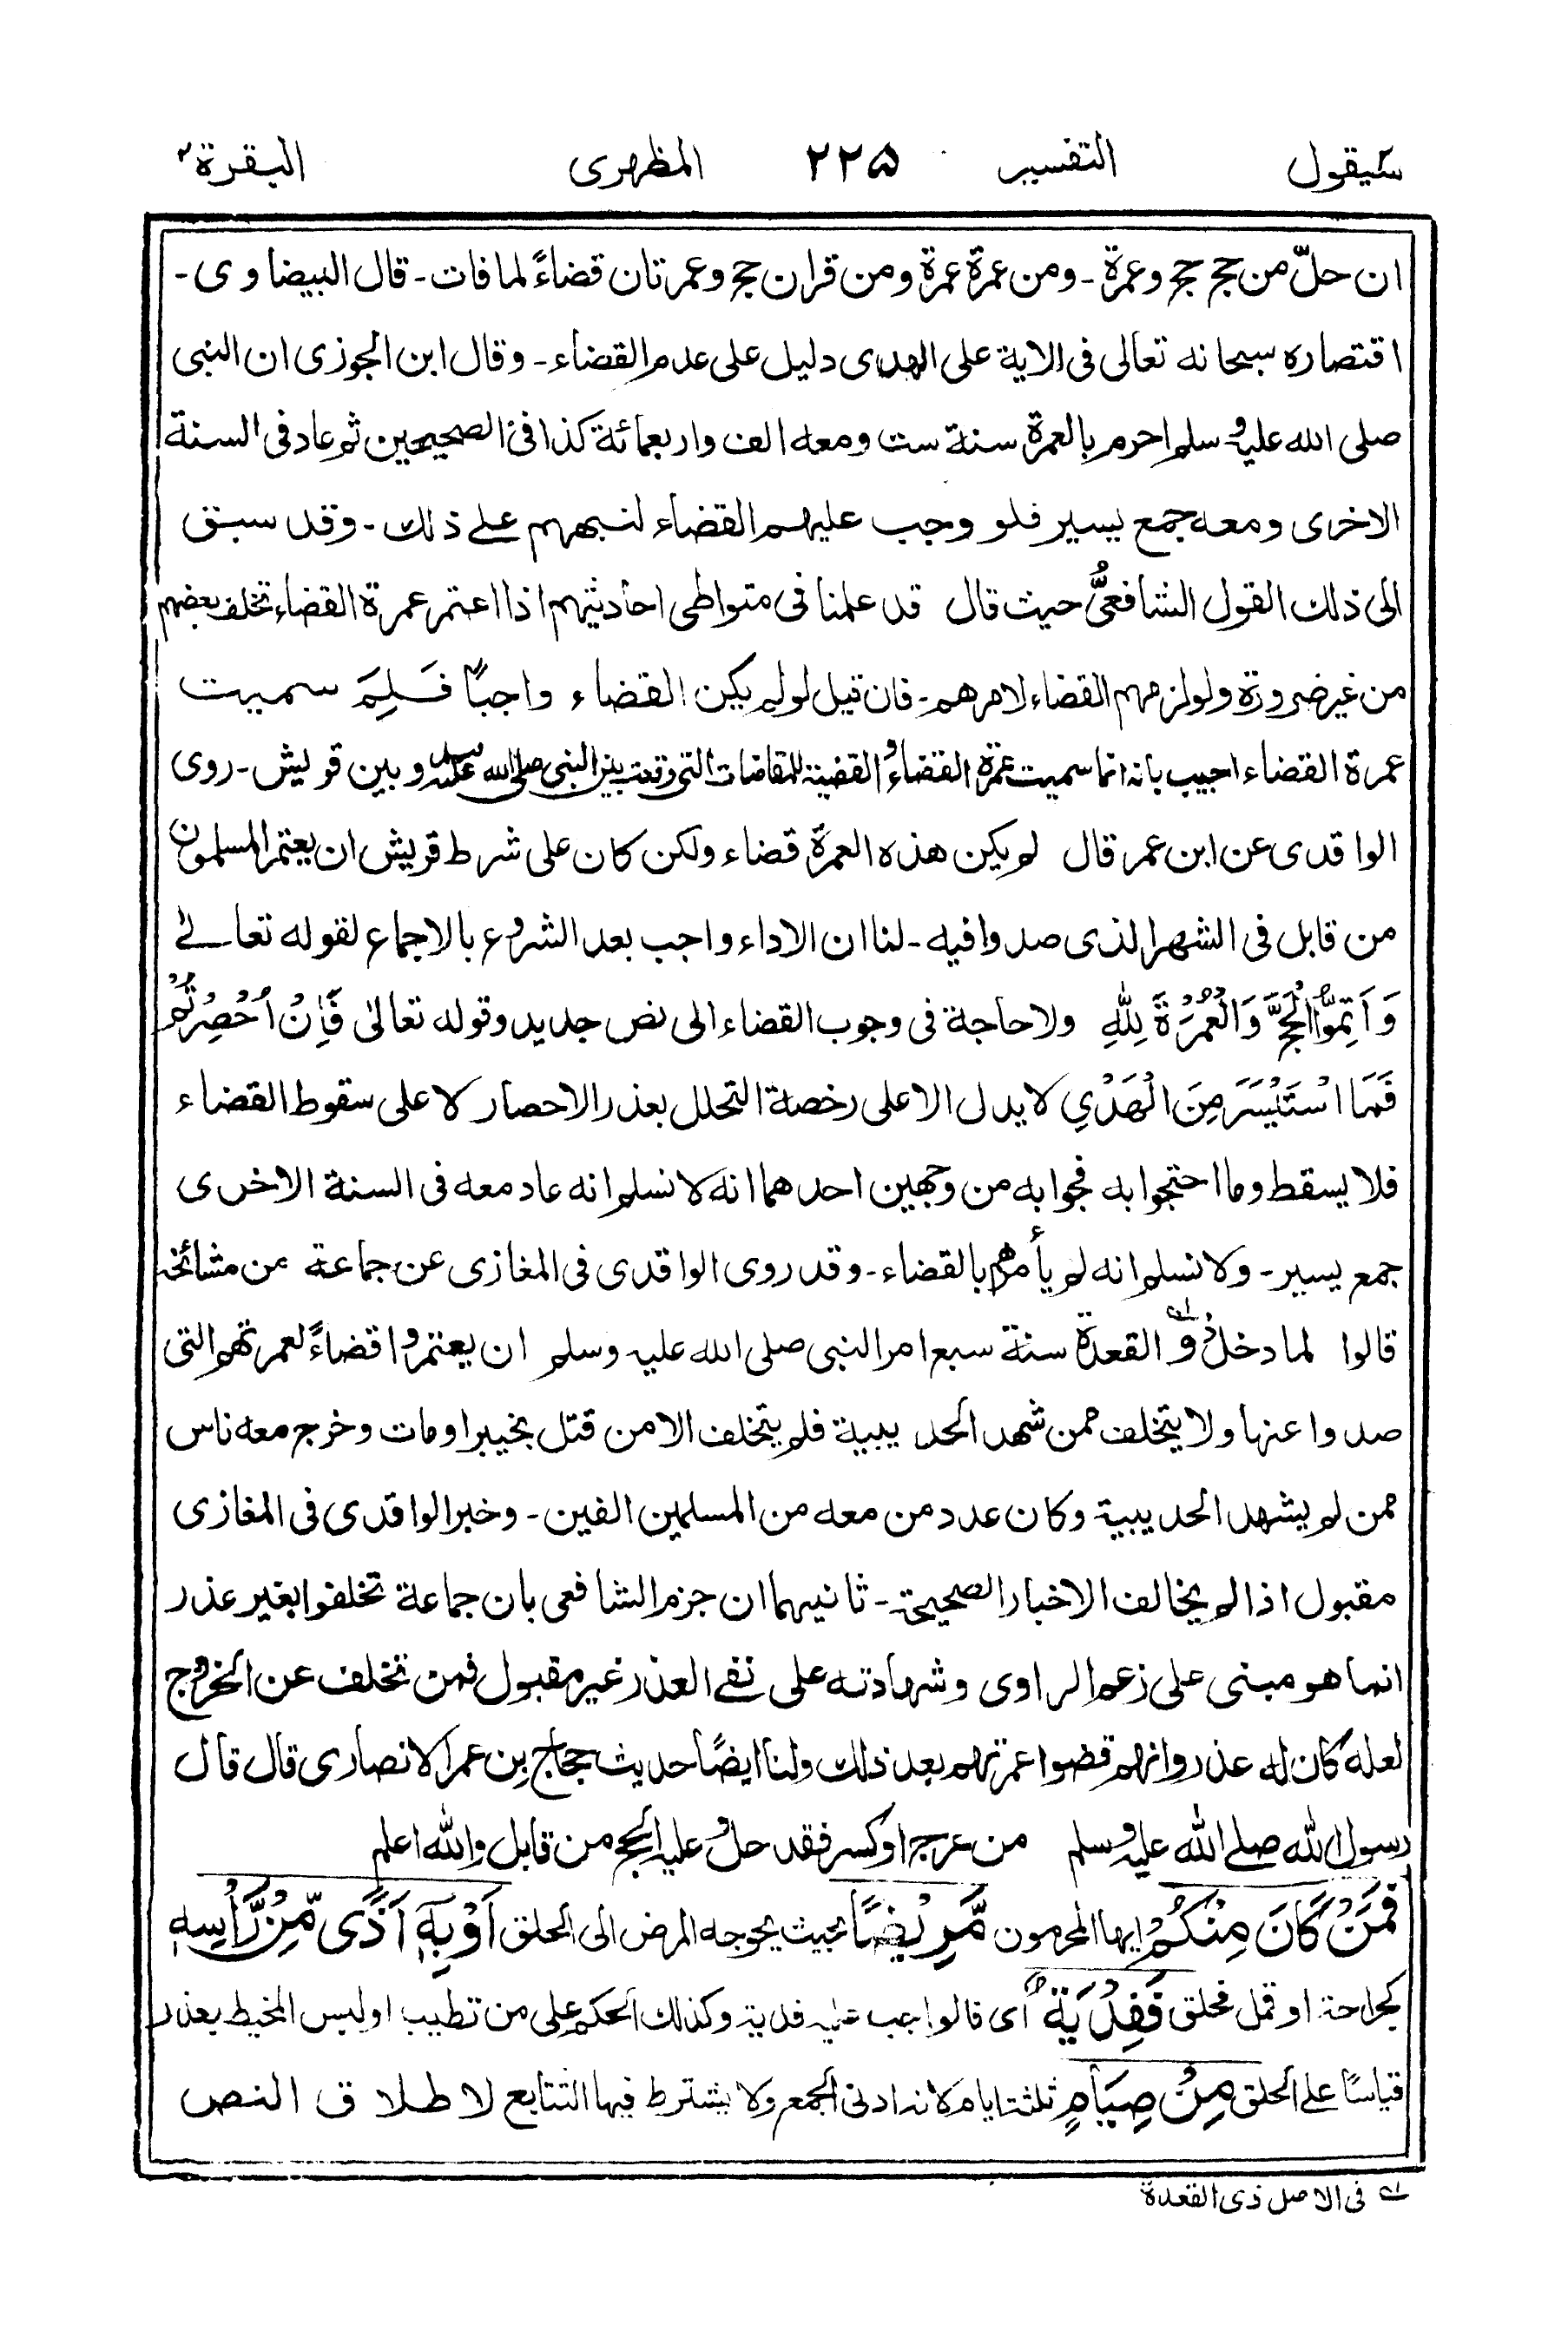 سيقول التفسير ٢٢٥ المظهرى البقرة ٢
ان حلّ من حج حج وعمرة - ومن عمرة عمرة ومن قران حج وعمرتان قضاءً لما فات - قال البيضاوى -
اقتصاره سبحانه تعالى فى الاية على الهدى دليل على عدم القضاء - وقال ابن الجوزى ان النبى
صلى الله عليه وسلم احرم بالعمرة سنة ست ومعه الف واربعمائة كذا فى الصحيحين ثم عاد فى السنة
الاخرى ومعه جمع يسير فلو وجب عليهم القضاء لنبههم على ذلك - وقد سبق
الى ذلك القول الشافعىُّ حيث قال قد علمنا فى متواطى احاديثهم اذا اعتمر عمرة القضاء تخلف بعضهم
من غير ضرورة ولو لزمهم القضاء لامرهم - فان قيل لو لم يكن القضاء واجباً فَلِمَ سميت
عمرة القضاء اجيب بانه انما سميت عمرة القضاء والقضية للمقاضات التى وقعت بين النبى صلى الله عليه وسلم وبين قريش - روى
الواقدى عن ابن عمر قال لم يكن هذه العمرة قضاء ولكن كان على شرط قريش ان يعتمر المسلمون
من قابل فى الشهر الذى صدوا فيه - لنا ان الاداء واجب بعد الشروع بالاجماع لقوله تعالىٰ
وَاَتِمُّوا الْحَجَّ وَالْعُمْرَةَ لِلّٰهِ ولا حاجة فى وجوب القضاء الى نص جديد وقوله تعالىٰ فَاِنْ اُحْصِرْتُمْ
فَمَا اسْتَيْسَرَ مِنَ الْهَدْيِ لا يدل الا على رخصة التحلل بعذر الاحصار لا على سقوط القضاء
فلا يسقط وما احتجوا به فجوابه من وجهين احدهما انه لا نسلم انه عاد معه فى السنة الاخرى
جمع يسير - ولا نسلم انه لم يأمرهم بالقضاء - وقد روى الواقدى فى المغازى عن جماعة من مشائخه
قالوا لما دخل ذو القعدة سنة سبع امر النبى صلى الله عليه وسلم ان يعتمروا قضاءً لعمرتهم التى
صدوا عنها ولا يتخلف ممن شهد الحديبية فلم يتخلف الا من قتل بخيبر او مات وخرج معه ناس
ممن لم يشهد الحديبية وكان عدد من معه من المسلمين الفين - وخبر الواقدى فى المغازى
مقبول اذا لم يخالف الاخبار الصحيحة - ثانيهما ان جزم الشافعى بان جماعة تخلفوا بغير عذر
انما هو مبنى على زعم الراوى وشهادته على نفى العذر غير مقبول فمن تخلف عن الخروج
لعله كان له عذر وانهم قضوا عمرتهم بعد ذلك ولنا ايضًا حديث حجاج بن عمر الانصارى قال قال
رسول الله صلى الله عليه وسلم من عرج او كسر فقد حل وعليه الحج من قابل والله اعلم
فَمَنْ كَانَ مِنْكُمْ ايها المحرمون مَّرِيْضًا بحيث يحوجه المرض الى الحلق اَوْ بِهٖٓ اَذًى مِّنْ رَّأْسِهٖ
كجراحة او قمل فحلق فَفِدْيَةٌ اى فالواجب عليه فدية وكذلك الحكم على من تطيب او لبس المخيط بعذر
قياسًا على الحلق مِنْ صِيَامٍ ثلثة ايام لانه ادنى الجمع ولا يشترط فيها التتابع لاطلاق النص
لہ فى الاصل ذى القعدة